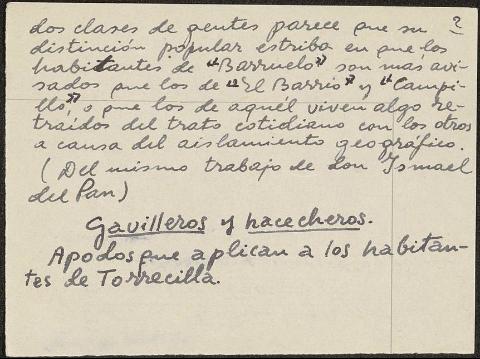 dos clases de gentes parece que su 2
distinción popular estriba en que los
habitantes de "Barruelo" son más avi-
sados que los de "El Barrio" y "Campi-
llo", o que los de aquél viven algo re-
traídos del trato cotidiano con los otros
a causa del aislamiento geográfico.
(Del mismo trabajo de don Ismael
del Pan)
Gavilleros y hacecheros.
Apodos que aplican a los habitan-
tes de Torrecilla.